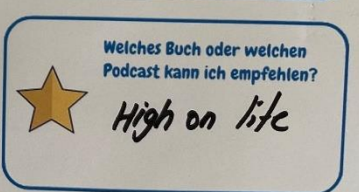 Welches Buch oder welchen
Podcast kann ich empfehlen?
High on life